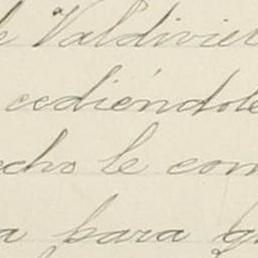 e Valdivie
cediéndole
cho le com
a para q